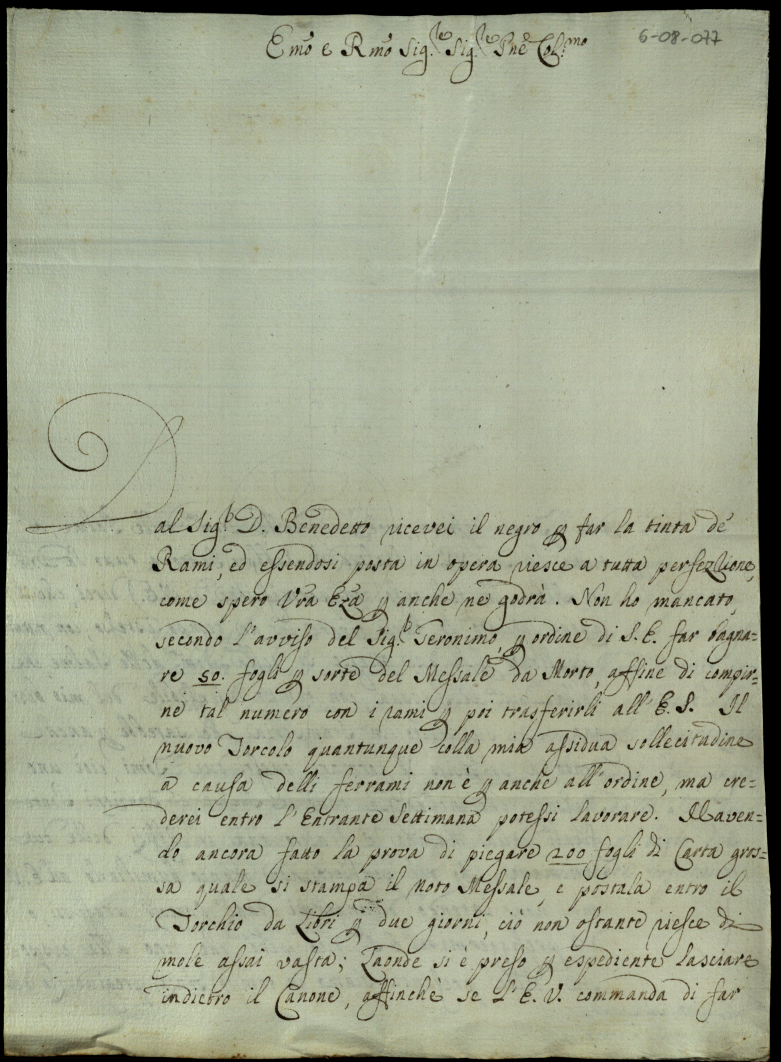 Emõ e Rmõ Sig.re Sig.re Pñe Col.mo
6-08-077
Dal Sig.r D. Benedetto ricevei il negro p far la tinta de
Rami, ed essendosi posta in opera riesce a tutta perfezzione,
come spero Vrã Ezã p anche ne godrà. Non ho mancato,
secondo l'avviso del Sig.r Geronimo, p ordine di S. E. far bagna=
re 50. fogli p sorte del Messale da Morto, affine di compir=
ne tal numero con i rami p poi trasferirli all'E. S. Il
nuovo Torcolo quantunque colla mia assidua sollecitudine
a causa delli ferrami non è p anche all'ordine, ma cre=
derei entro l'Entrante Settimana potessi lavorare. Haven=
do ancora fatto la prova di piegare 200 fogli di Carta gros=
sa quale si stampa il noto Messale, e postala entro il
Torchio da Libri p due giorni, ciò non ostante riesce di
mole assai vasta; Laonde si è preso p espediente lasciare
indietro il Canone, affinchè se l'E. V. commanda di far